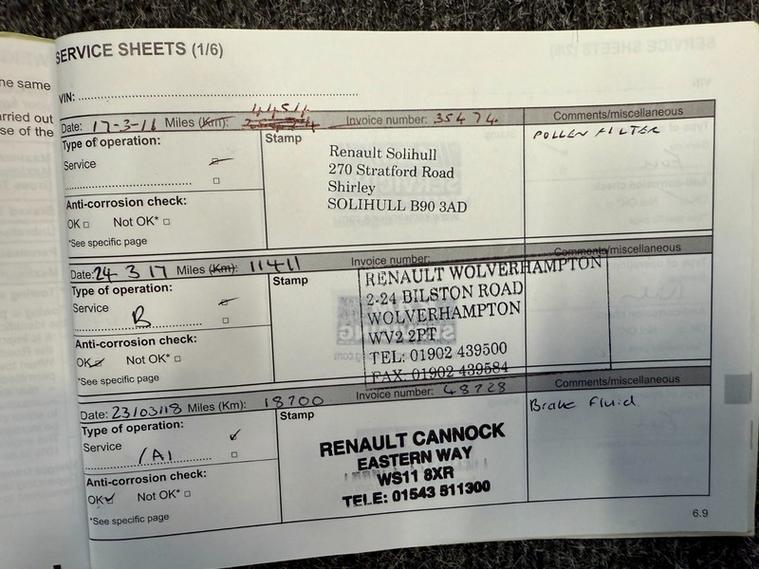 SERVICE SHEETS (1/6)
ne same
VIN:
arried out
se of the
4454
Date: 17-3-16 Miles (Km): Invoice number: 35474 Comments/miscellaneous
Type of operation: Stamp POLLEN FILTER
Service
Renault Solihull
270 Stratford Road
Shirley
SOLIHULL B90 3AD
Anti-corrosion check:
OK □ Not OK* □
*See specific page
Date: 24 3 17 Miles (Km): 11411 Invoice number: Comments/miscellaneous
Type of operation: Stamp
Service
B
RENAULT WOLVERHAMPTON
2-24 BILSTON ROAD
WOLVERHAMPTON
WV2 2PT
TEL: 01902 439500
FAX. 01902 439584
Anti-corrosion check:
OK Not OK* □
*See specific page
Date: 23/03/18 Miles (Km): 18700 Invoice number: 48728 Comments/miscellaneous
Type of operation: Stamp Brake Fluid
Service
/A1
RENAULT CANNOCK
EASTERN WAY
WS11 8XR
TELE: 01543 511300
Anti-corrosion check:
OK Not OK* □
*See specific page
6.9